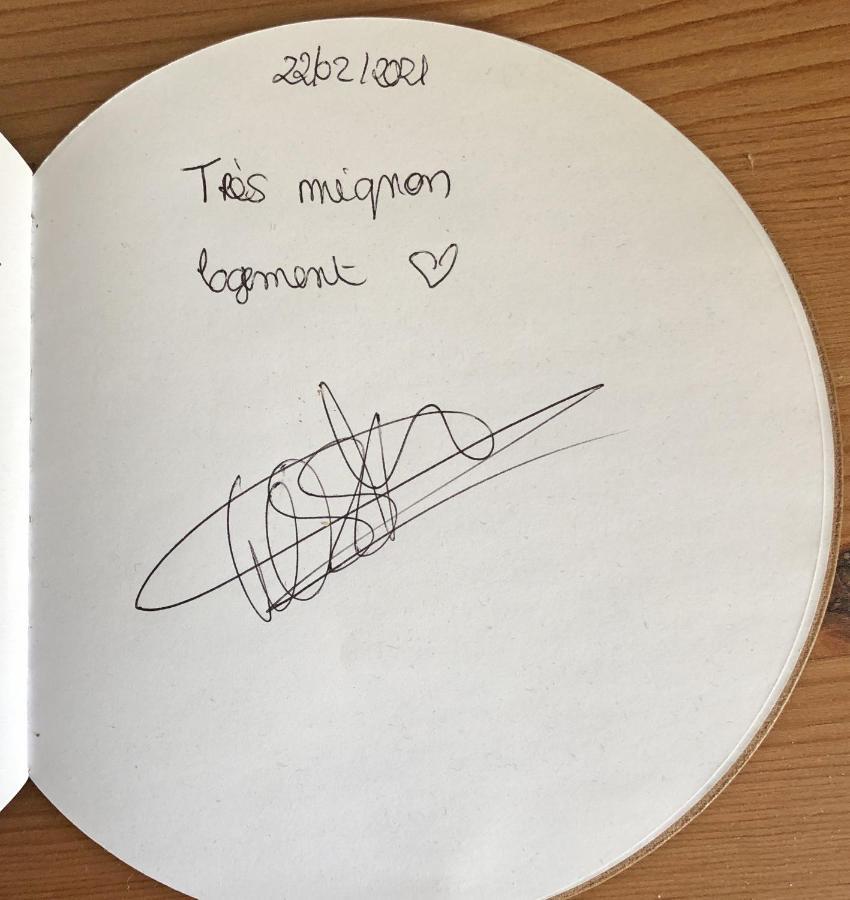 22/02/2021
Très mignon
logement ♡